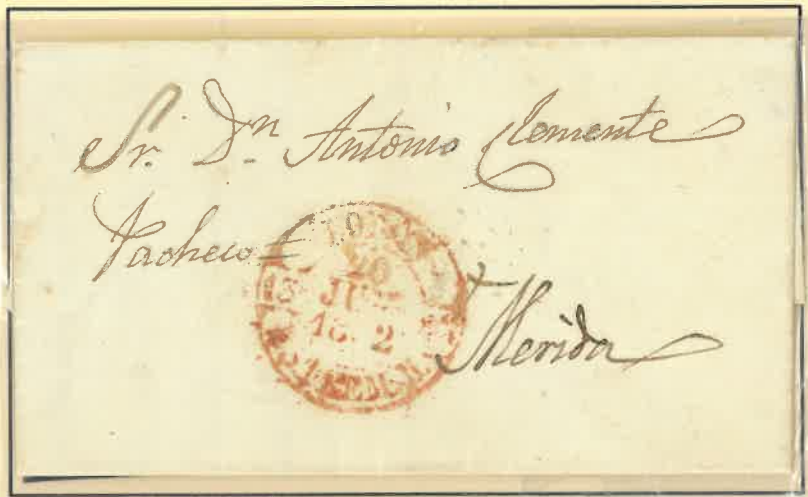 Sr. Dn Antonio Clemente
Pacheco
20
JU
Merida